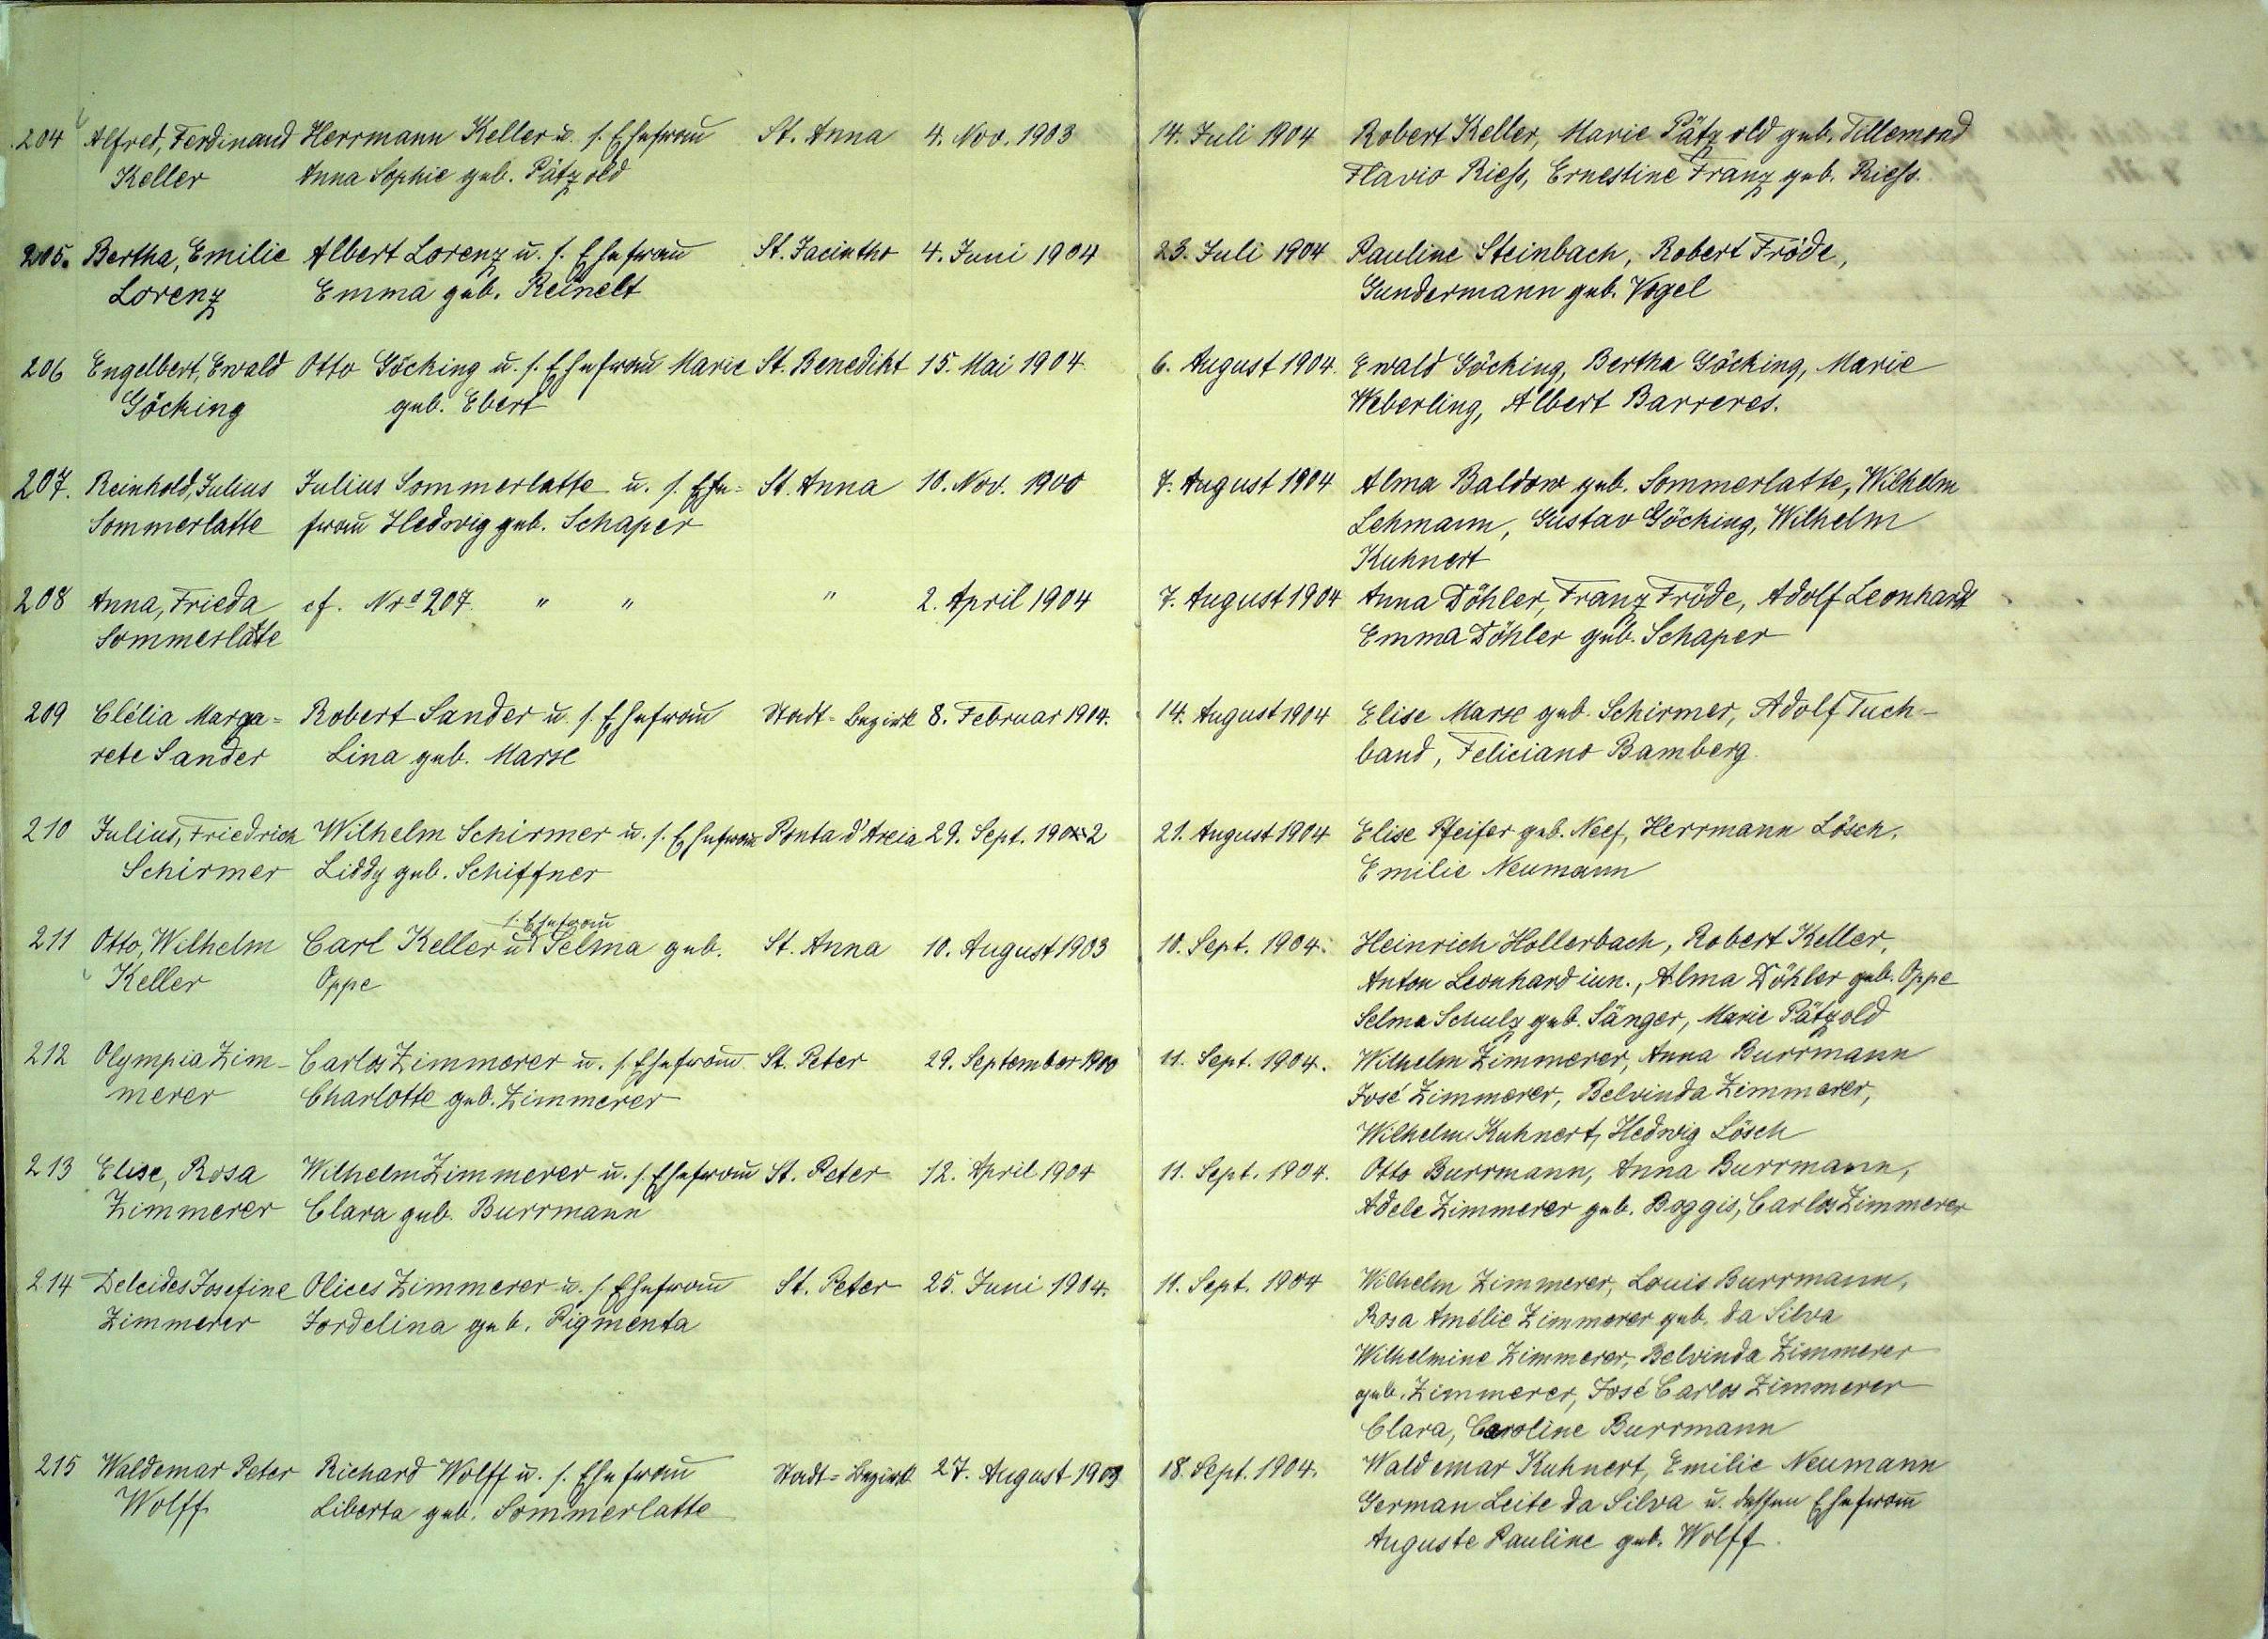 204 Alfred, Ferdinand Herrmann Keller u. s. Ehefrau St. Anna 4. Nov. 1903 14. Juli 1904 Robert Keller, Marie Pätzold geb. Tillemond
Keller Anna Sophie geb. Pätzold Flavio Riess, Ernestine Franz geb. Riess.
205. Bertha, Emilie Albert Lorenz u. s. Ehefrau St. Jacintho 4. Juni 1904 23. Juli 1904 Pauline Steinbach, Robert Fröde,
Lorenz Emma geb. Reinelt Gundermann geb. Vogel
206 Engelbert, Ewald Otto Göcking u. s. Ehefrau Marie St. Benedikt 15. Mai 1904 6. August 1904. Ewald Göcking, Bertha Göcking, Marie
Göcking geb. Ebert Weberling, Albert Barreres.
207. Reinhold, Julius Julius Sommerlatte u. s. Ehe= St. Anna 10. Nov. 1900 7. August 1904 Alma Baldow geb. Sommerlatte, Wilhelm
Sommerlatte frau Hedwig geb. Schaper Lehmann, Gustav Göcking, Wilhelm
Kuhnert
208 Anna, Frieda cf. Nro 207. " " " 2. April 1904 7. August 1904 Anna Döhler, Franz Fröde, Adolf Leonhardt
Sommerlatte Emma Döhler geb. Schaper
209 Clélia Marga= Robert Sander u. s. Ehefrau Stadt=bezirk 8. Februar 1904. 14. August 1904 Elise Marse geb. Schirmer, Adolf Tuch-
rete Sander Lina geb. Marse band, Feliciano Bamberg.
210 Julius, Friedrich Wilhelm Schirmer u. s. Ehefrau Ponta d'Areia 29. Sept. 1902 21. August 1904 Elise Pfeifer geb. Neef, Herrmann Lösch,
Schirmer Liddy geb. Schiffner Emilie Neumann
s. Ehefrau
211 Otto, Wilhelm Carl Keller u. Selma geb. St. Anna 10. August 1903 10. Sept. 1904. Heinrich Hollerbach, Robert Keller,
Keller Oppe Anton Leonhard iun., Alma Döhler geb. Oppe
Selma Schulz geb. Sänger, Marie Pätzold
212 Olympia Zim- Carlos Zimmerer u. s. Ehefrau St. Peter 29. September 1900 11. Sept. 1904. Wilhelm Zimmerer, Anna Burrmann
merer Charlotte geb. Zimmerer José Zimmerer, Belvinda Zimmerer,
Wilhelm Kuhnert, Hedwig Lösch
213 Elise, Rosa Wilhelm Zimmerer u. s. Ehefrau St. Peter 12. April 1904 11. Sept. 1904. Otto Burrmann, Anna Burrmann,
Zimmerer Clara geb. Burrmann Adele Zimmerer geb. Boggis, Carlos Zimmerer
214 Delcides Josefine Olices Zimmerer u. s. Ehefrau St. Peter 25. Juni 1904. 11. Sept. 1904 Wilhelm Zimmerer, Louis Burrmann,
Zimmerer Jordelina geb. Pigmenta Rosa Amélie Zimmerer geb. da Silva
Wilhelmine Zimmerer, Belvinda Zimmerer
geb. Zimmerer, José Carlos Zimmerer
Clara, Caroline Burrmann
215 Waldemar Peter Richard Wolff u. s. Ehefrau Stadt=Bezirk 27. August 1903 18. Sept. 1904. Waldemar Kuhnert, Emilie Neumann
Wolff Liberta geb. Sommerlatte German Leite da Silva u. dessen Ehefrau
Auguste Pauline geb. Wolff.